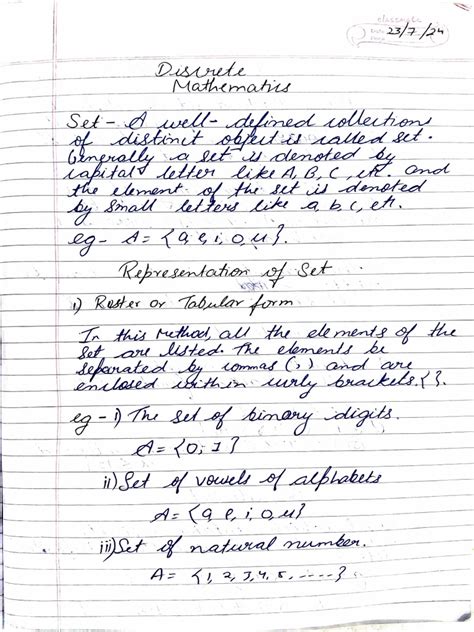 23/7/24
Discrete
Mathematics
Set - A well-defined collections
of distinct object is called set.
Generally a set is denoted by
capital letter like A, B, C, etc. and
the element of the set is denoted
by small letters like a, b, c, etc.
eg - A = {a, e, i, o, u}.
Representation of Set
1) Roster or Tabular form
In this Method, all the elements of the
set are listed. The elements be
separated by commas (,) and are
enclosed within curly brackets. { }.
eg - i) The set of binary digits.
A = {0, 1}
ii) Set of vowels of alphabets
A = {a, e, i, o, u}
iii) Set of natural number.
A = {1, 2, 3, 4, 5, -----}